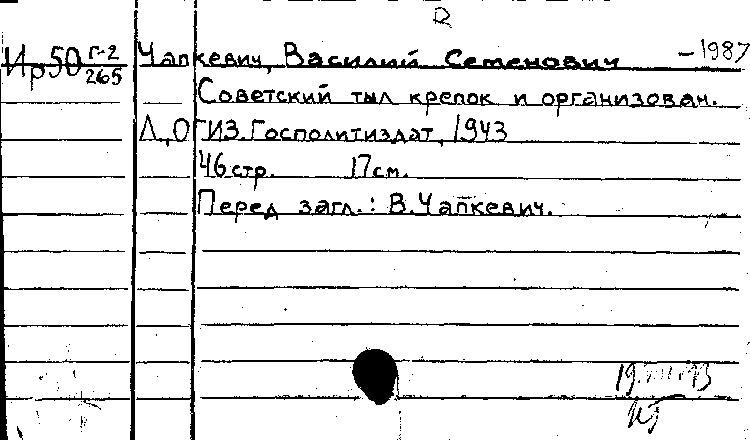 Ир50 Г-2/265 Чапкевич, Василий Семенович –1987
Советский тыл крепок и организован.
Л., ОГИЗ. Госполитиздат, 1943
46 стр. 17 см.
Перед загл.: В. Чапкевич.